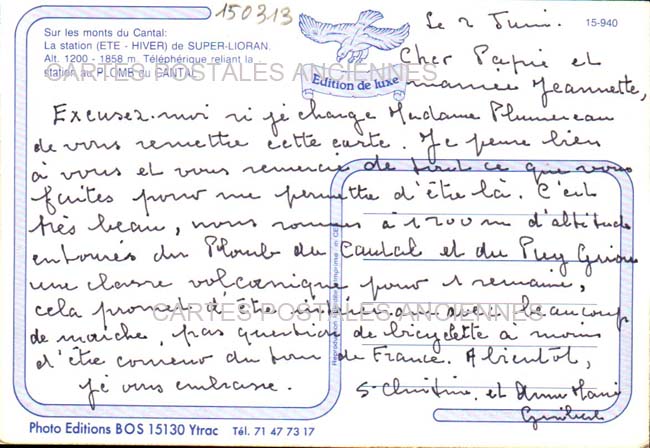 150313
Sur les monts du Cantal:
La station (ETE - HIVER) de SUPER-LIORAN.
Alt. 1200 - 1858 m. Téléphérique reliant la
station au PLOMB du CANTAL
15-940
Edition de luxe
CARTES POSTALES ANCIENNES
Le 2 Juin.
Cher Papie et
mamie Jeannette,
Excusez-moi si je charge Madame Plumereau
de vous remettre cette carte. Je pense bien
à vous et vous remercie de tout ce que vous
faites pour me permettre d'être là. C'est
très beau, nous sommes à 1200 m d'altitude
entourés du Plomb du Cantal et du Puy Griou
une classe volcanique pour 1 semaine,
cela promet d'être avec beaucoup
CARTES POSTALES ANCIENNES
de marche, pas question de bicyclette à moins
d'être coureur du tour de France. A bientôt,
je vous embrasse.
Sr Christine et Anne Marie
Photo Editions BOS 15130 Ytrac Tél. 71 47 73 17